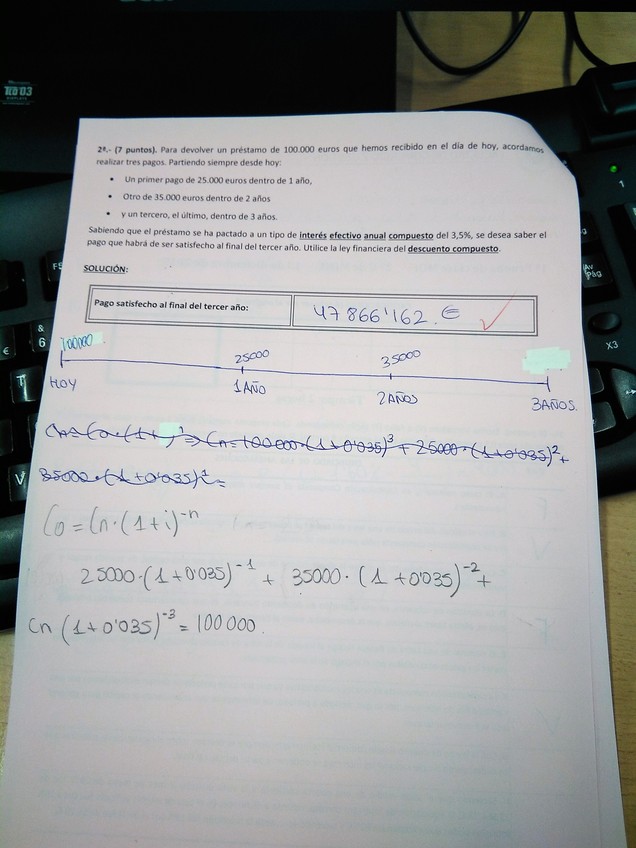 TCO'03
2ª.- (7 puntos). Para devolver un préstamo de 100.000 euros que hemos recibido en el día de hoy, acordamos
realizar tres pagos. Partiendo siempre desde hoy:
• Un primer pago de 25.000 euros dentro de 1 año,
• Otro de 35.000 euros dentro de 2 años
• y un tercero, el último, dentro de 3 años.
Sabiendo que el préstamo se ha pactado a un tipo de interés efectivo anual compuesto del 3,5%, se desea saber el
pago que habrá de ser satisfecho al final del tercer año. Utilice la ley financiera del descuento compuesto.
SOLUCIÓN:
Pago satisfecho al final del tercer año: 47866'162.€
100000 25000 35000
HOY 1AÑO 2AÑOS 3AÑOS.
Cn=Co·(1+ )¹ => Cn=100000·(1+0'035)³ + 25000·(1+0'035)²+
35000·(1+0'035)¹=
Co=Cn·(1+i)⁻ⁿ
25000·(1+0'035)⁻¹ + 35000·(1+0'035)⁻²+
Cn (1+0'035)⁻³ = 100000.
F5
&
6
€
T
V
Av
Pág
X3
1